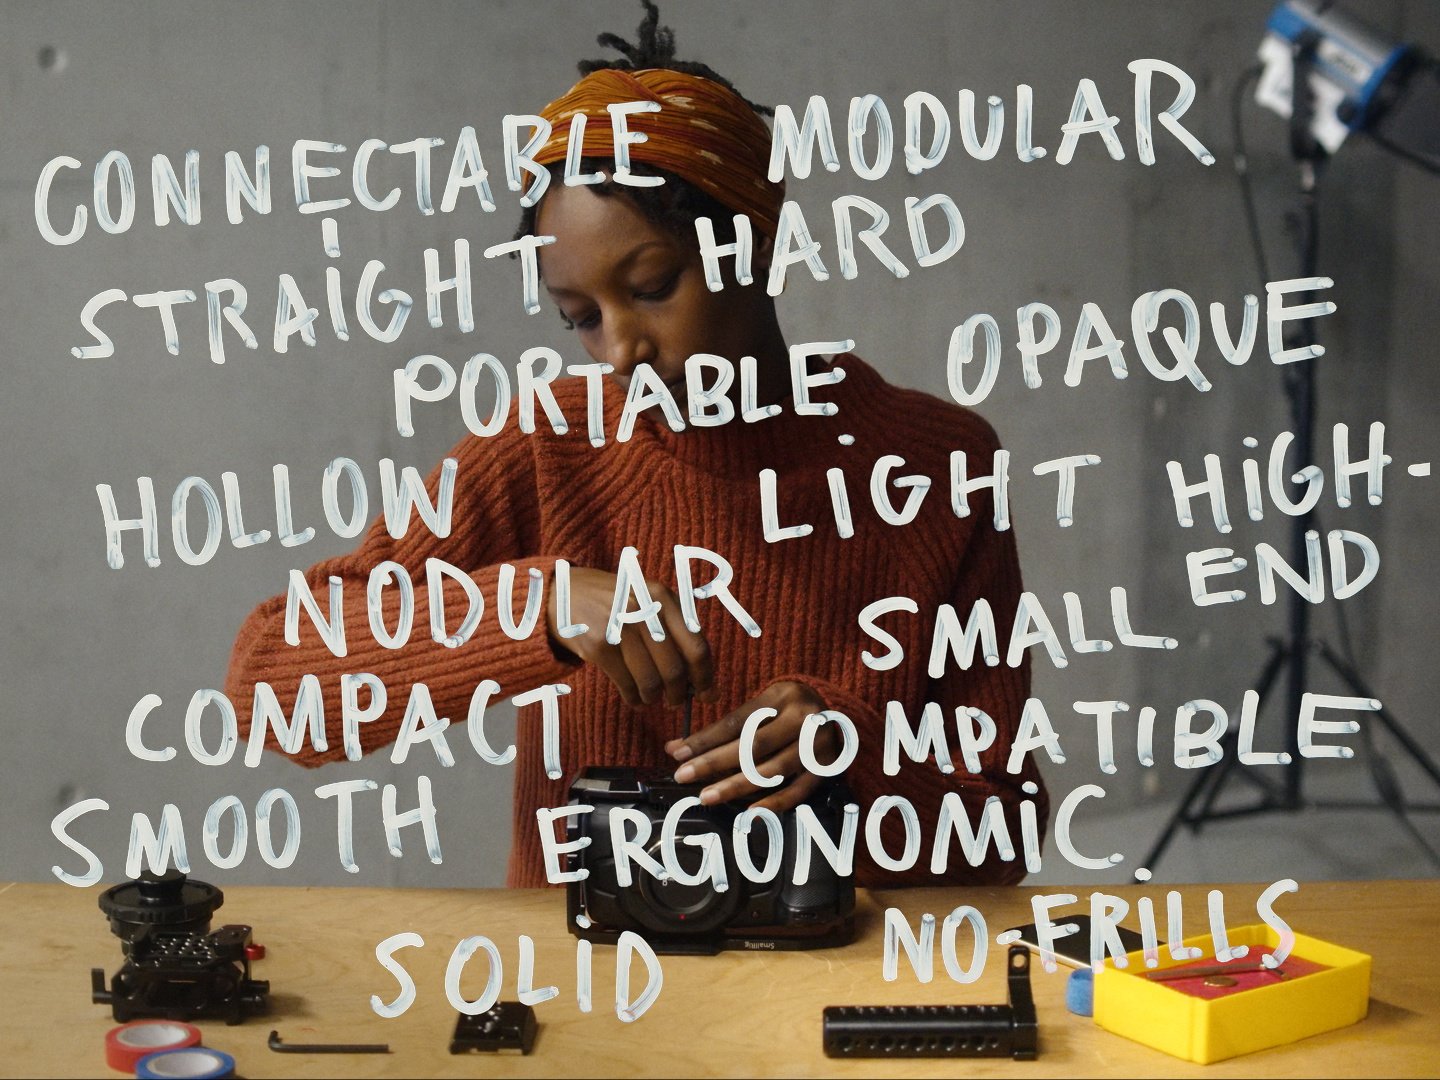 CONNECTABLE MODULAR
STRAIGHT HARD
PORTABLE OPAQUE
HOLLOW LIGHT HIGH-
END
NODULAR SMALL
COMPACT COMPATIBLE
SMOOTH ERGONOMIC
SOLID NO-FRILLS
SmallRig